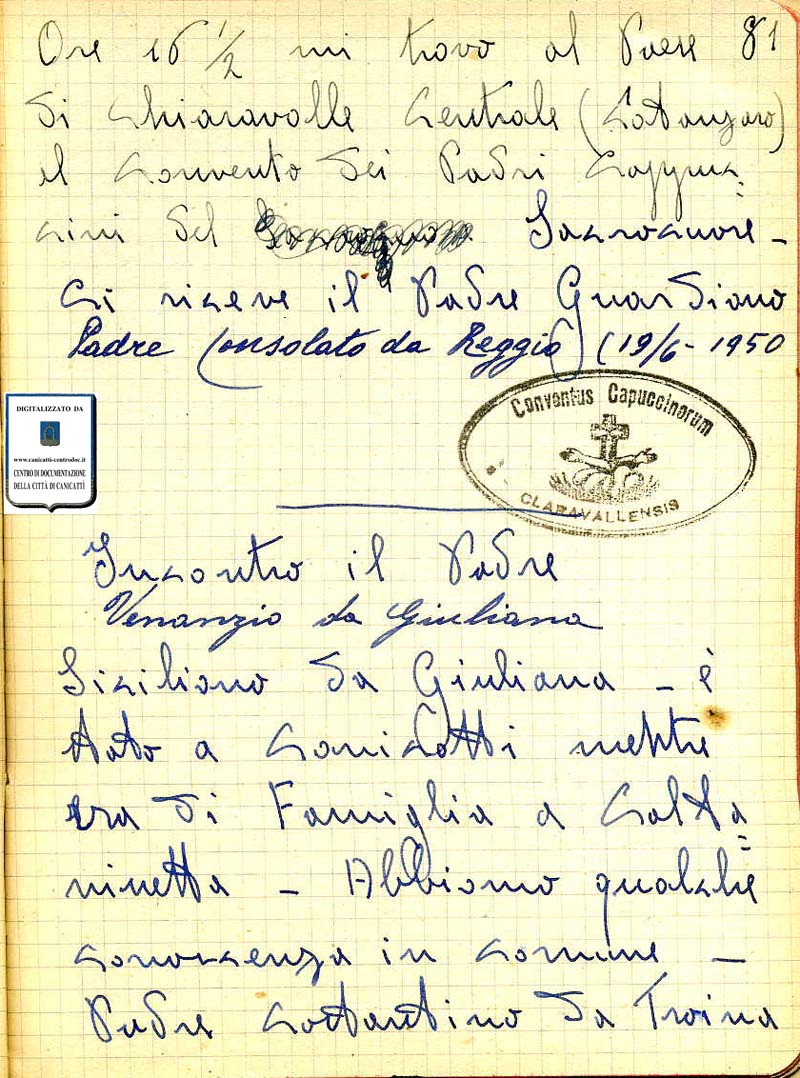 Ore 16 1/2 mi trovo al Paese 81
di Chiaravalle Centrale (Catanzaro)
al Convento dei Padri Cappuc=
cini del Sacrocuore -
Ci riceve il Padre Guardiano
Padre Consolato da Reggio) (19/6-1950
Conventus Capuccinorum
CLARAVALLENSIS
DIGITALIZZATO DA
www.canicatti-centrodoc.it
CENTRO DI DOCUMENTAZIONE
DELLA CITTÀ DI CANICATTÌ
Incontro il Padre
Venanzio da Giuliana
Siciliano da Giuliana - è
stato a Canicattì mentre
era di Famiglia a Calta=
nisetta - Abbiamo qualche
conoscenza in comune -
Padre Costantino da Troina